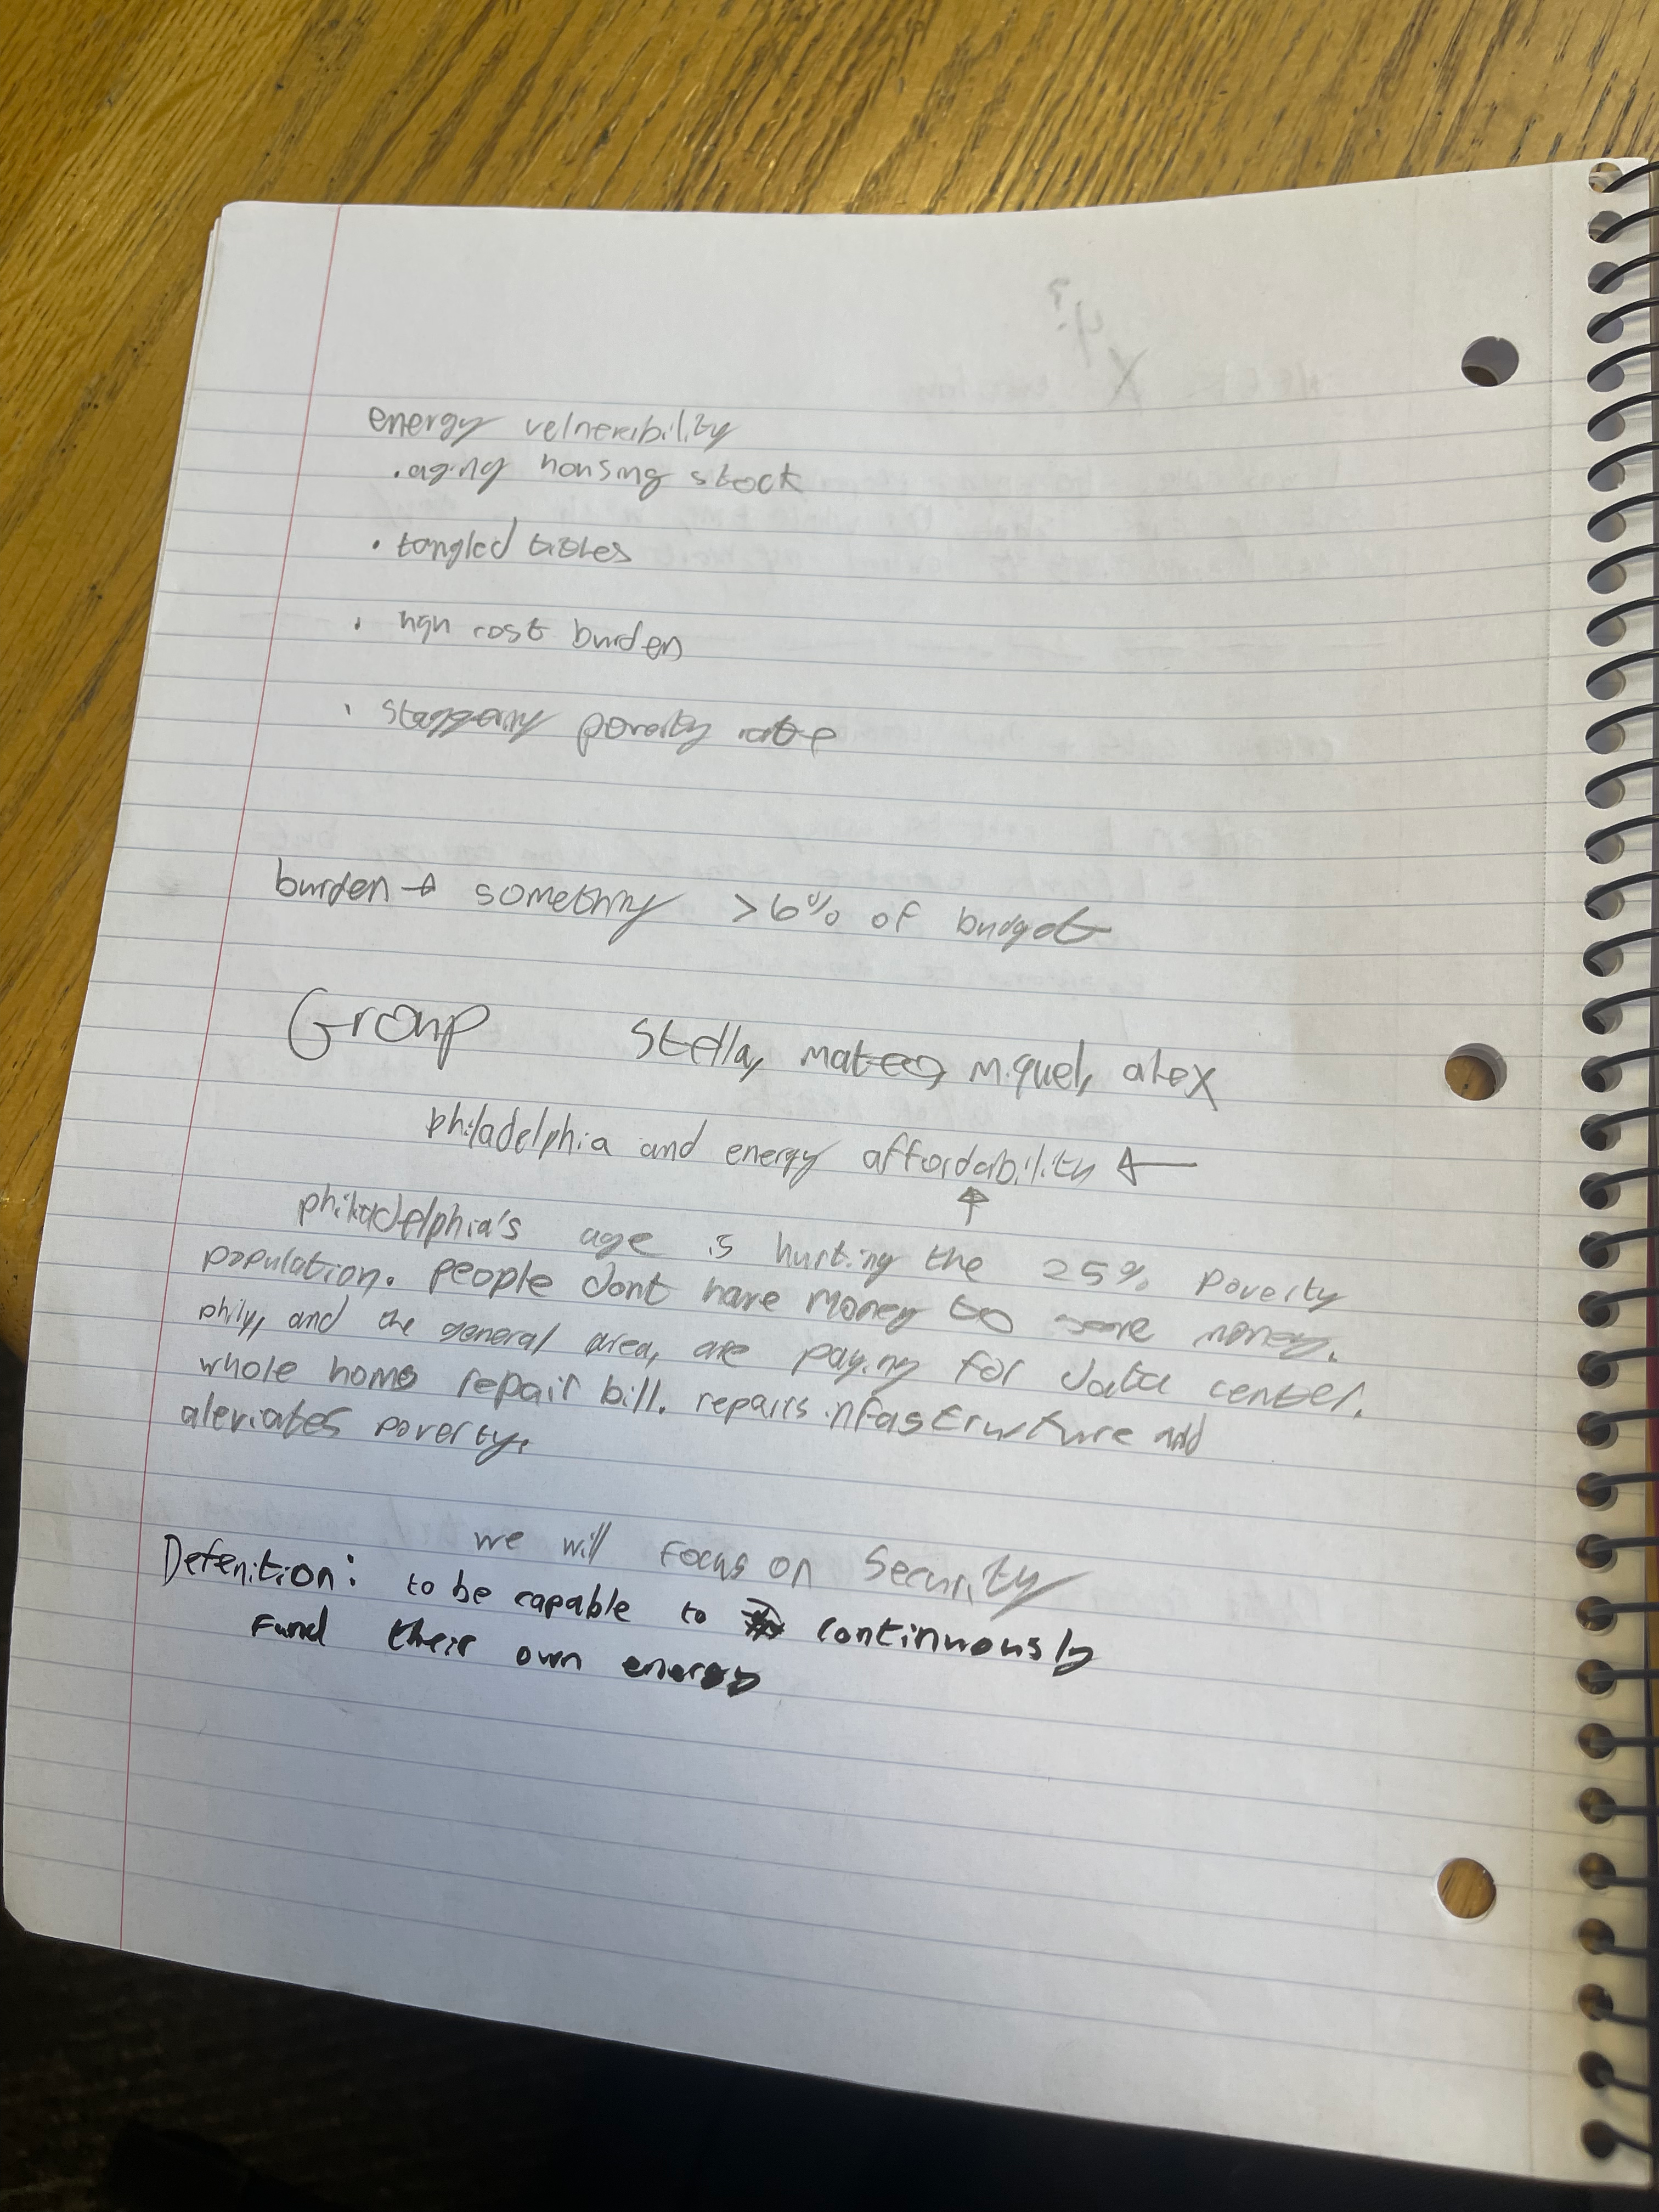 energy velneribility
. aging housing stock
• tangled titles
. high cost burden
. staggering poverty rate
burden → something >6% of budget
Group Stella, mateo, Miguel, alex
philadelphia and energy affordability ←
↑
philadelphia's age is hurting the 25% poverty
population. people dont have money to save money.
phily, and the general area, are paying for data center.
whole home repair bill. repairs infastructure and
aleviates poverty.
we will focus on Security
Defenition: to be capable to continuously
Fund their own energy